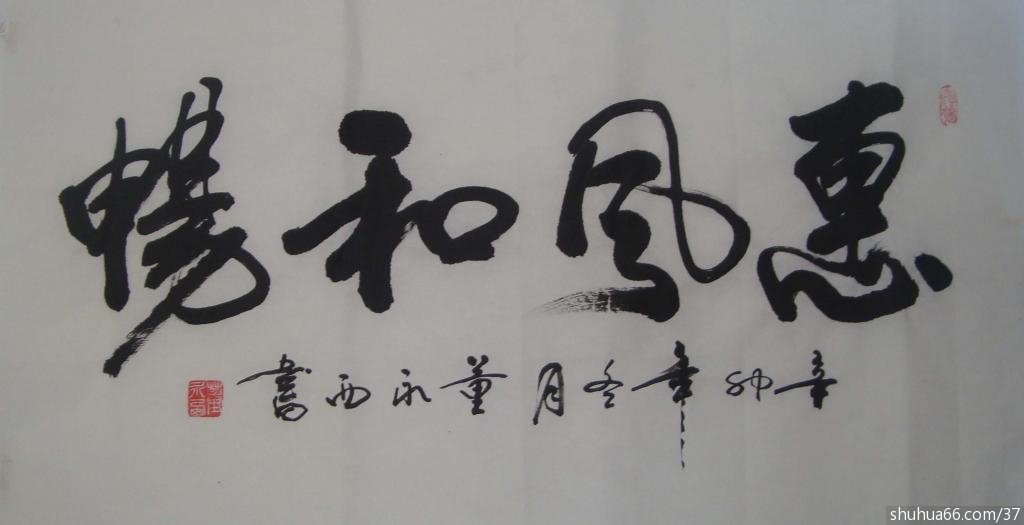 惠風和暢
辛卯年冬月董永西書
shuhua66.com/37